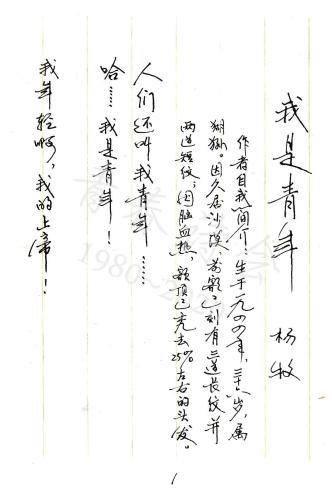 我是青年
杨牧
作者自我简介：生于一九四四年，三十六岁，属
猢狲。因久居沙漠，前额已刻有三道长纹并
两道短纹；因脑血热，额顶已秃去25%左右的头发。
人们还叫我青年……
哈……我是青年！
我年轻啊，我的上帝！
青春诗会
1980
1